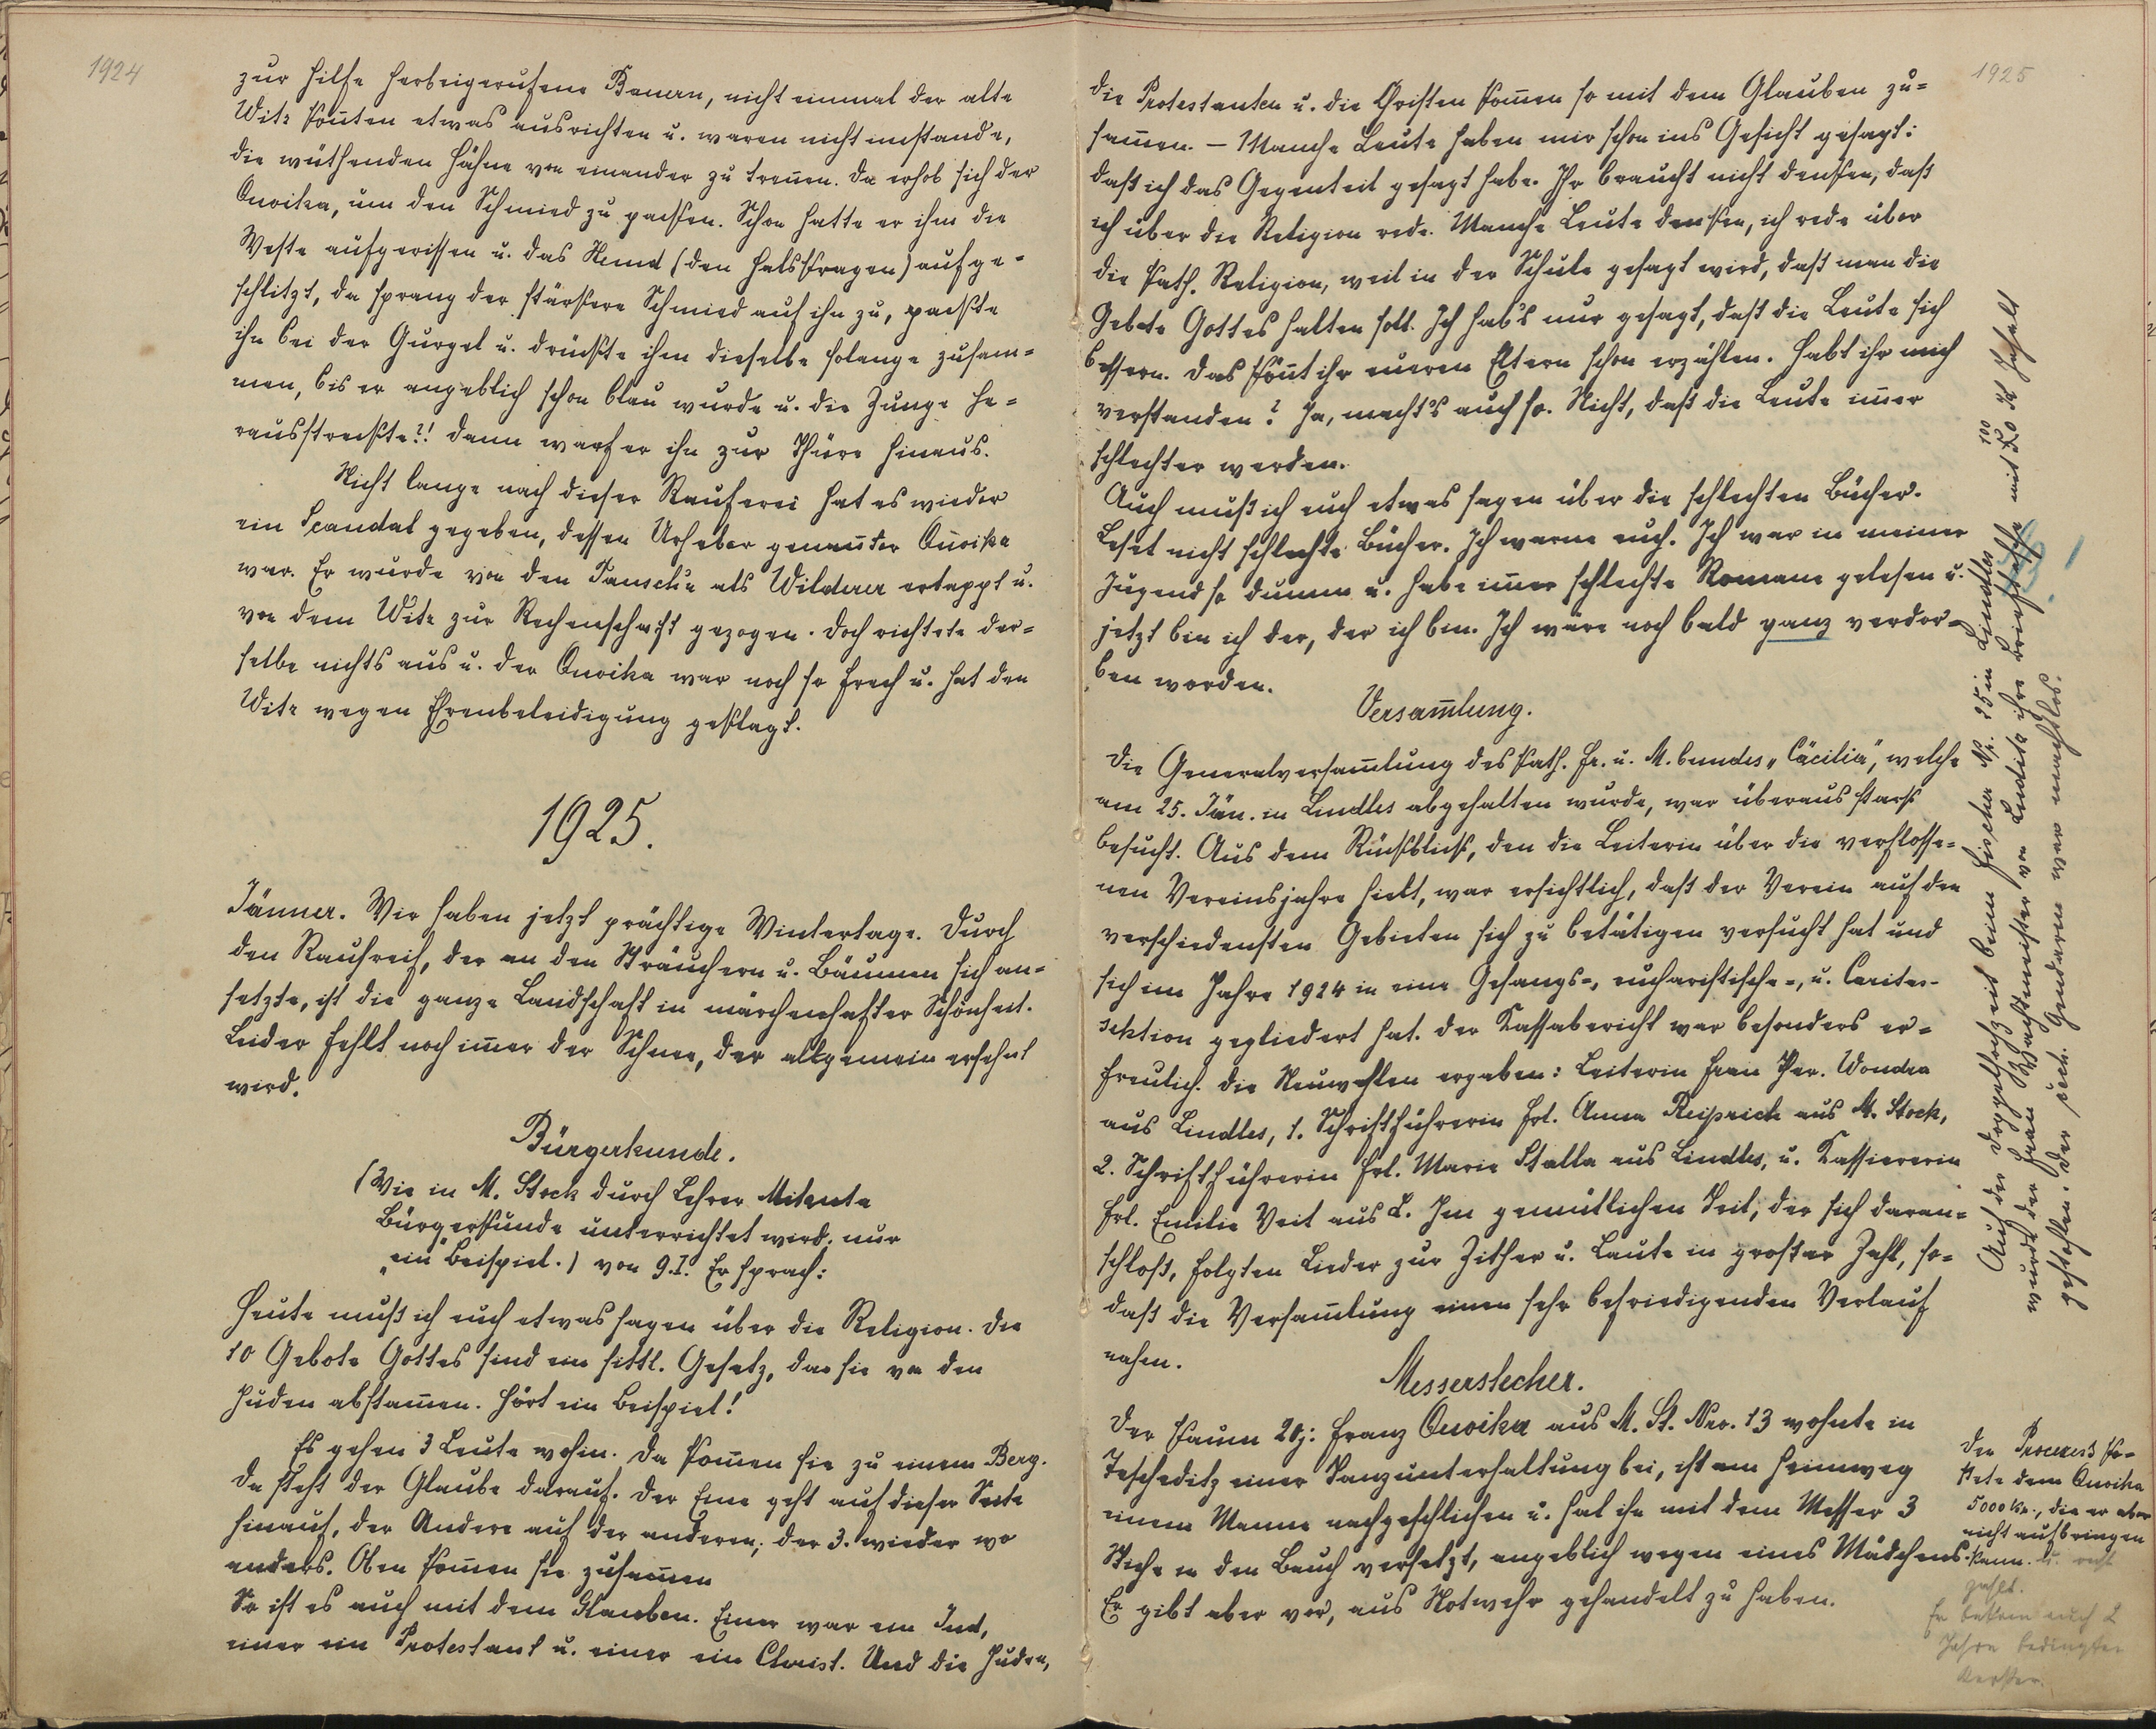 1924
zur Hilfe herbeigerufene Bauern, nicht einmal der alte
Witz kon̄ten etwas ausrichten u. waren nicht imstande,
die wüthenden Hähne von einander zu tren̄en. Da erhob sich der
Onoika, um den Schmied zu packen. Schon hatte er ihm die
Weste aufgerissen u. das Hemd (den Halskragen) aufge-
schlitzt, da sprang der stärkere Schmied auf ihn zu, packte
ihn bei der Gurgel u. drückte ihm dieselbe solange zusam-
men, bis er angeblich schon blau wurde u. die Zunge he-
rausstreckte?! Dann warf er ihn zur Thüre hinaus.
Nicht lange nach dieser Rauferei hat es wieder
ein Scandal gegeben, dessen Urheber genan̄ter Onoika
war. Er wurde von den als Wilderer ertappt u.
von dem Witz zur Rechenschaft gezogen. Doch richtete der-
selbe nichts aus u. der Onoika war noch so frech u. hat den
Witz wegen Ehrenbeleidigung geklagt.
1925.
Jänner. Wir haben jetzt prächtige Wintertage. Durch
den Rauhreif, der an den Sträuchern u. Bäumen sich an-
setzte, ist die ganze Landschaft in märchenhafter Schönheit.
Leider fehlt noch im̄er der Schnee, der allgemein ersehnt
wird.
Bürgerkunde.
(Wie in M. Stock durch Lehrer Mikuta
Bürgerkunde unterrichtet wird; nur
"ein" Beispiel.) von 9.I. Er sprach:
Heute muß ich euch etwas sagen über die Religion. Die
10 Gebote Gottes sind ein sittl. Gesetz, das sie von den
Juden abstam̄en. Hört ein Beispiel!
Es gehen 3 Leute wohin. Da kom̄en sie zu einem Berg.
Da steht der Glaube darauf. Der Eine geht auf dieser Seite
hinauf, der Andere auf der anderen, der 3. wieder wo
anders. Oben kom̄en sie zusam̄en
So ist es auch mit dem Glauben. Einer war ein Jud,
einer ein Protestant u. einer ein Christ. Und die Juden,
1925
die Protestanten u. die Christen kom̄en so mit dem Glauben zu-
sam̄en. – Manche Leute haben mir schon ins Gesicht gesagt:
daß ich das Gegenteil gesagt habe. Ihr braucht nicht denken, daß
ich über die Religion rede. Manche Leute denken, ich rede über
die kath. Religion, weil in der Schule gesagt wird, daß man die
Gebote Gottes halten soll. Ich hab's nur gesagt, daß die Leute sich
bessern. Das kön̄t ihr eueren Eltern schon erzählen. Habt ihr mich
verstanden? Ja, macht's auch so. Nicht, daß die Leute im̄er
schlechter werden.
Auch muß ich euch etwas sagen über die schlechten Bücher.
Leset nicht schlechte Bücher. Ich warne euch. Ich war in meiner
Jugend so dumm u. habe im̄er schlechte Romane gelesen u.
jetzt bin ich der, der ich bin. Ich wäre noch bald ganz verdor-
ben worden.
Versam̄lung.
Die Generalversam̄lung des kath. Fr. u. M. bundes „Cäcilia“, welche
am 25. Jän. in Lindles abgehalten wurde, war überaus stark
besucht. Aus dem Rückblick, den die Leiterin über die verflosse-
nen Vereinsjahre hielt, war ersichtlich, daß der Verein auf den
verschiedensten Gebieten sich zu betätigen versucht hat und
sich im Jahre 1924 in eine Gesangs-, eucharistische-, u. Caritas-
sektion gegliedert hat. Der Kassabericht war besonders er-
freulich. Die Neuwahlen ergaben: Leiterin Frau Wondra
aus Lindles, 1. Schriftführerin Frl. Anna Reiprich aus M. Stock,
2. Schriftführerin Frl. Marie Stalla aus Lindles, u. Kassiererin
Frl. Emilie Veit aus L. Im gemütlichen Teil, der sich daran-
schloß, folgten Lieder zur Zither u. Laute in großer Zahl, so-
daß die Versam̄lung einen sehr befriedigenden Verlauf
nahm.
Messerstecher.
Der kaum 20j: Franz Onoika aus M. St. Nro. 13 wohnte in
Tescheditz einer Tanzunterhaltung bei, ist am Heimweg
einem Manne nachgeschlichen u. hat ihn mit dem Messer 3
Stiche in den Bauch versetzt, angeblich wegen eines Mädchens.
Er gibt aber vor, aus Notwehr gehandelt zu haben.
Der Process ko-
stete dem Onoika
5000 Kr., die er aber
nicht aufbringen
kann.
Er bekam auch 2
Jahre bedingten
Kerker.
Auf der Doppelhochzeit beim Fischer Nr. 25 in Lindles
wurde der Frau Wachtmeister von Luditz ihre Brieftasche mit Inhalt
gestohlen. Der Gendarm war machtlos.